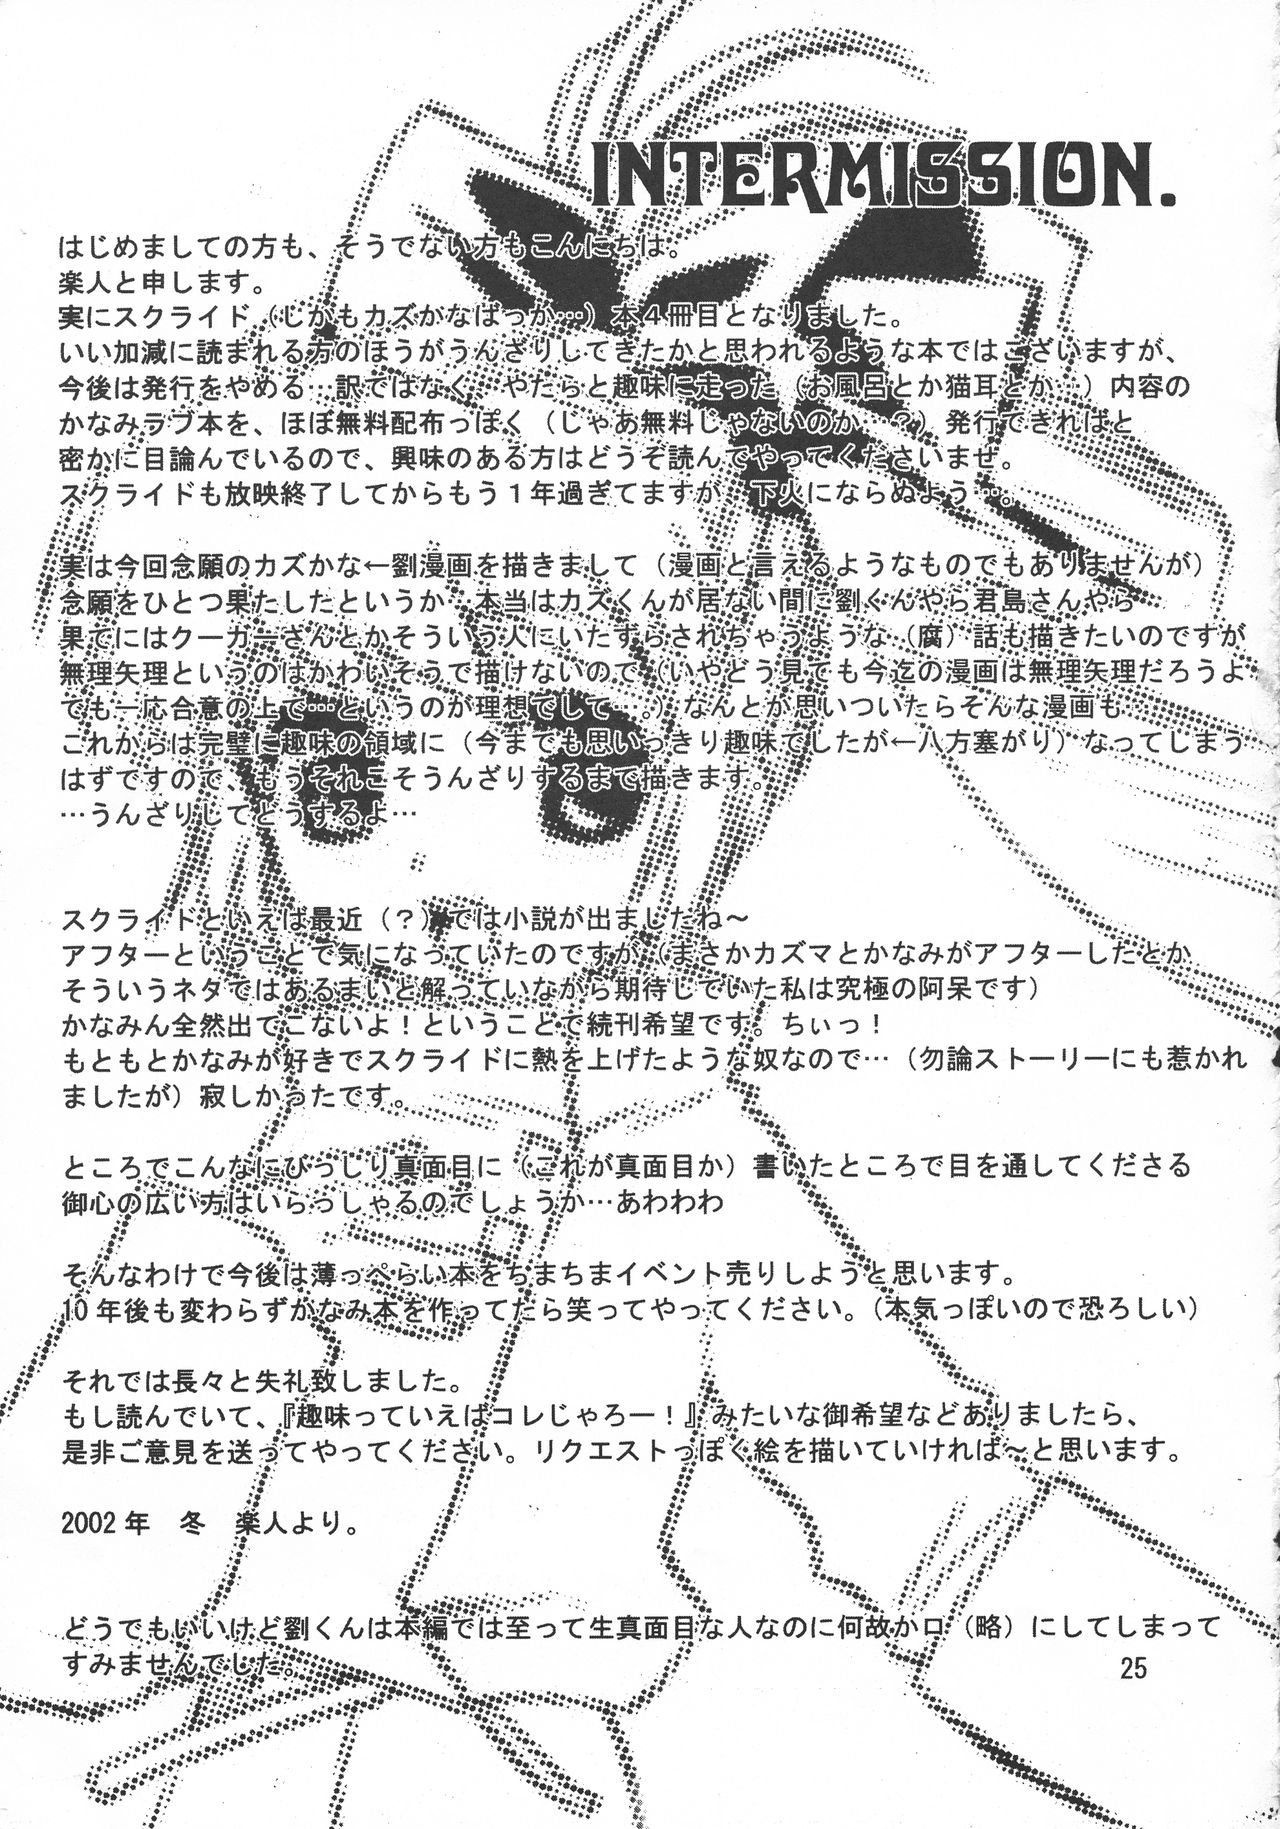 INTERMISSION.
はじめましての方も、そうでない方もこんにちは。
楽人と申します。
実にスクライド（しかもカズかなばっか…）本４冊目となりました。
いい加減に読まれる方のほうがうんざりしてきたかと思われるような本ではございますが、
今後は発行をやめる…訳ではなく、やたらと趣味に走った（お風呂とか猫耳とか…）内容の
かなみラブ本を、ほぼ無料配布っぽく（じゃあ無料じゃないのか…？）発行できればと
密かに目論んでいるので、興味のある方はどうぞ読んでやってくださいまぜ。
スクライドも放映終了してからもう１年過ぎてますが、下火にならぬよう…。
実は今回念願のカズかな←劉漫画を描きまして（漫画と言えるようなものでもありませんが）
念願をひとつ果たしたというか、本当はカズくんが居ない間に劉くんやら君島さんやら
果てにはクーガーさんとかそういう人にいたずらされちゃうような（腐）話も描きたいのですが
無理矢理というのはかわいそうで描けないので（いやどう見ても今迄の漫画は無理矢理だろうよ
でも一応合意の上で…というのが理想でして…。）なんとか思いついたらそんな漫画も…
これからは完璧に趣味の領域に（今までも思いっきり趣味でしたが←八方塞がり）なってしまう
はずですので、もうそれこそうんざりするまで描きます。
…うんざりしてどうするよ…
スクライドといえば最近（？）では小説が出ましたね～
アフターということで気になっていたのですが（まさかカズマとかなみがアフターしたとか
そういうネタではあるまいと解っていながら期待していた私は究極の阿呆です）
かなみん全然出てこないよ！ということで続刊希望です。ちぃっ！
もともとかなみが好きでスクライドに熱を上げたような奴なので…（勿論ストーリーにも惹かれ
ましたが）寂しかったです。
ところでこんなにびっしり真面目に（これが真面目か）書いたところで目を通してくださる
御心の広い方はいらっしゃるのでしょうか…あわわわ
そんなわけで今後は薄っぺらい本をちまちまイベント売りしようと思います。
10年後も変わらずかなみ本を作ってたら笑ってやってください。（本気っぽいので恐ろしい）
それでは長々と失礼致しました。
もし読んでいて、『趣味っていえばコレじゃろー！』みたいな御希望などありましたら、
是非ご意見を送ってやってください。リクエストっぽく絵を描いていければ～と思います。
2002年　冬　楽人より。
どうでもいいけど劉くんは本編では至って生真面目な人なのに何故かロ（略）にしてしまって
すみませんでした。
25